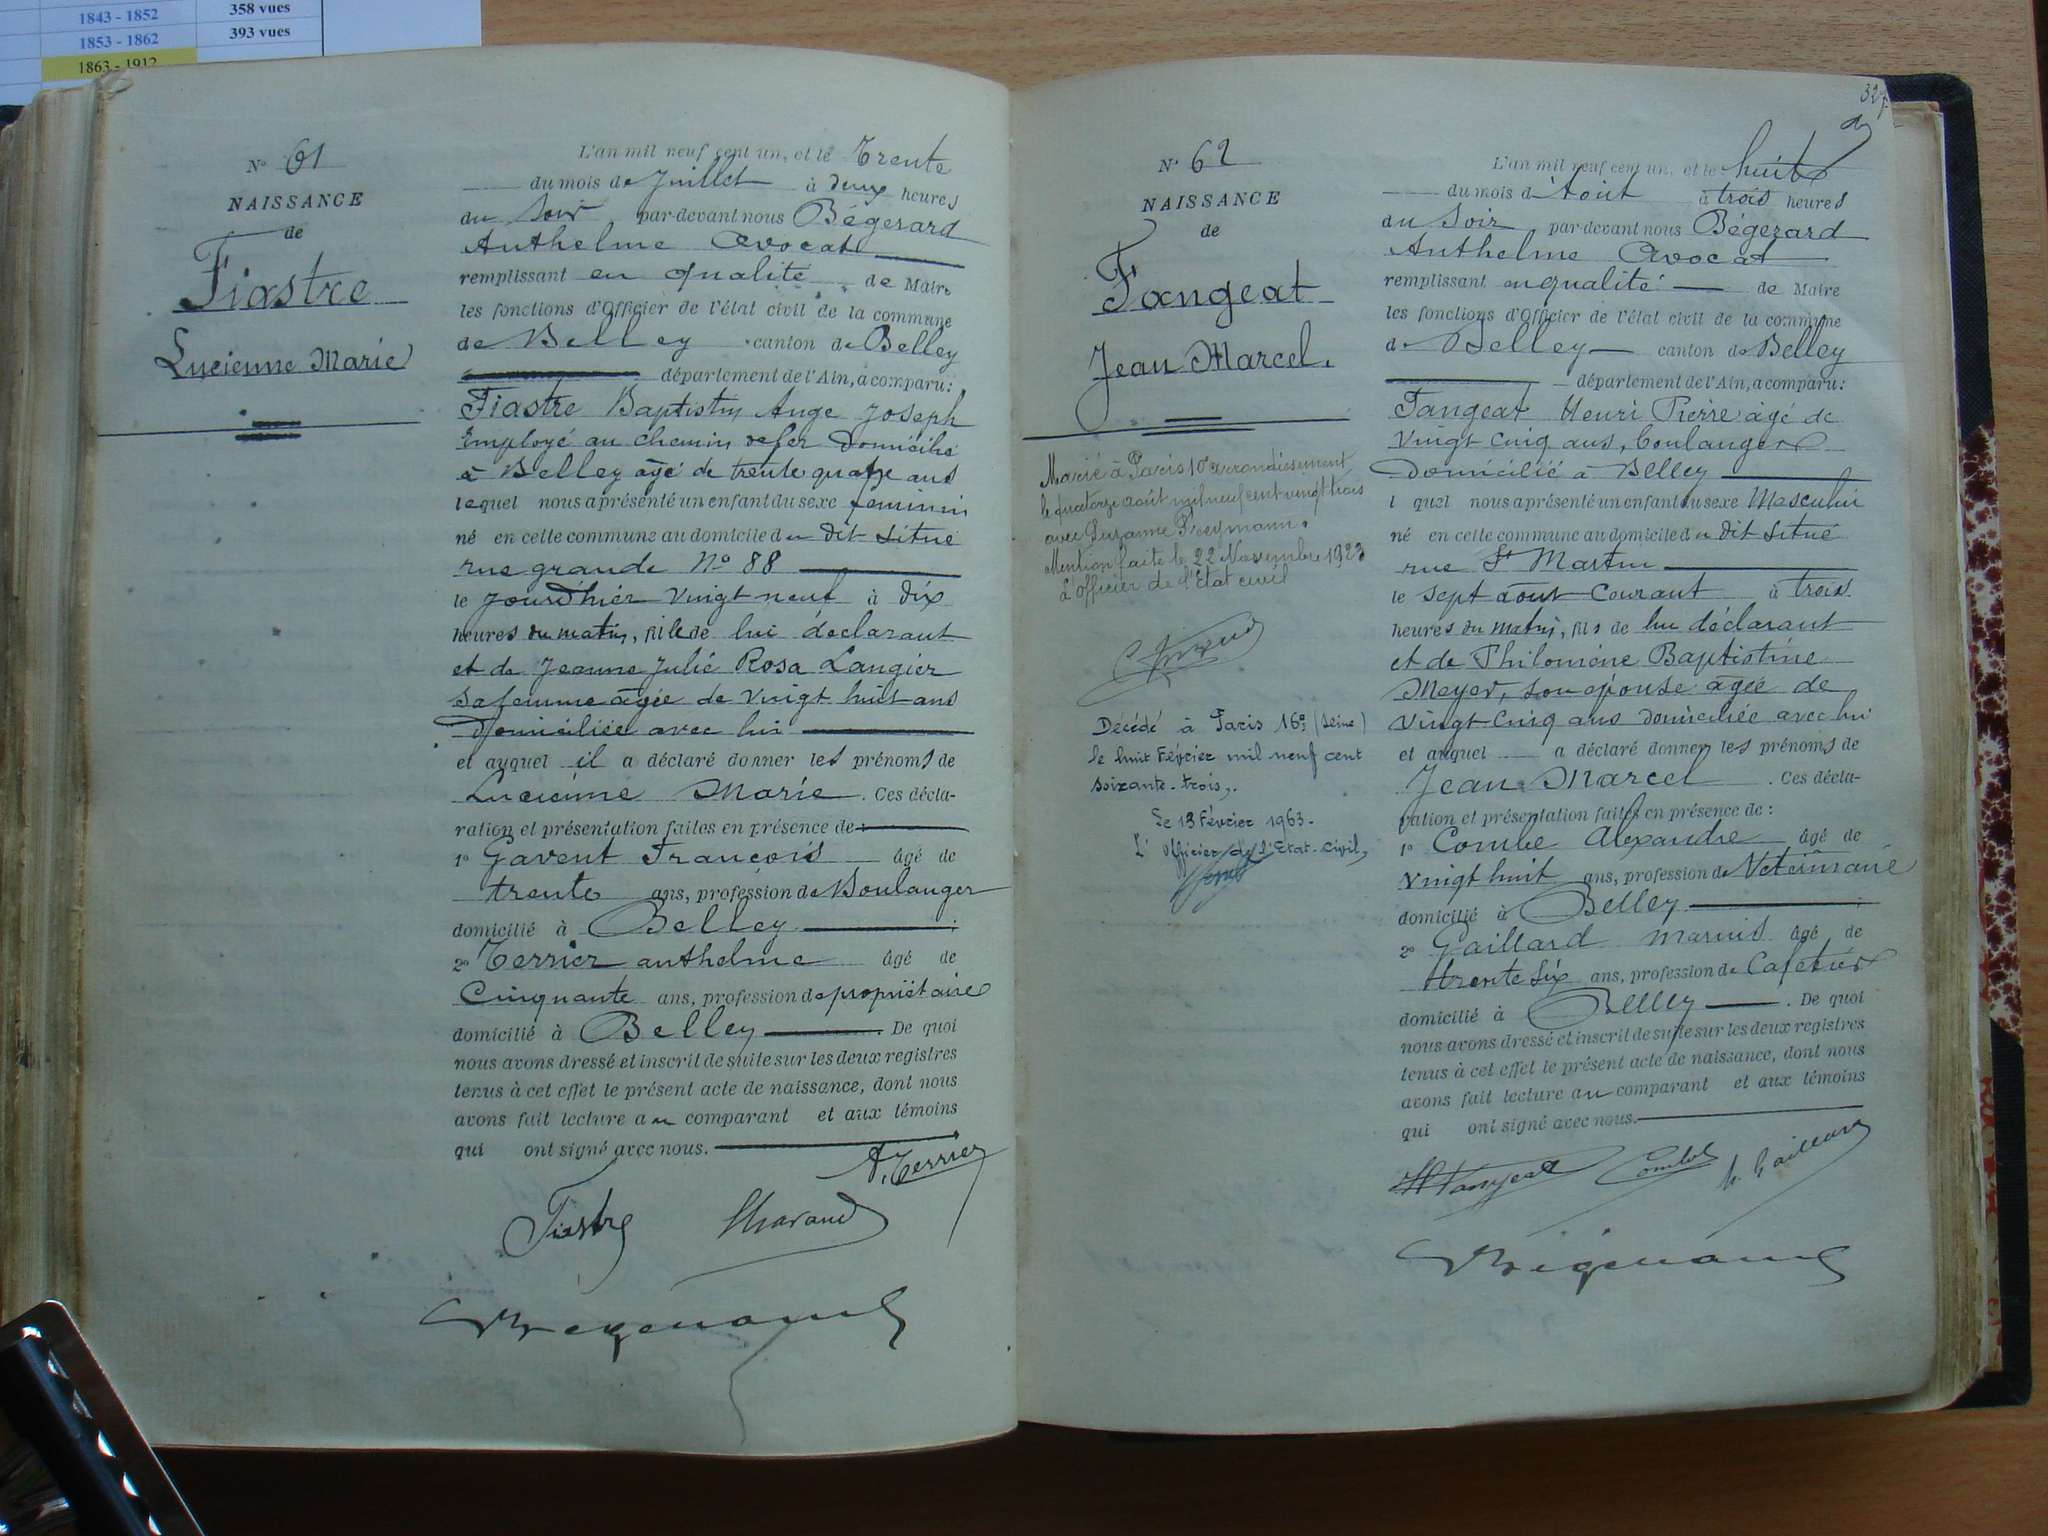 1843 - 1852
358 vues
1853 - 1862
393 vues
1863 - 1912
N° 61
NAISSANCE
de
Fiastre
Lucienne Marie
L'an mil neuf cent un, et le Trente
du mois de Juillet à deux heures
du Soir par-devant nous Bégerard
Anthelme Avocat
remplissant en qualité de Maire
les fonctions d'Officier de l'état civil de la commune
de Belley canton de Belley
département de l'Ain, a comparu:
Fiastre Baptistin Ange Joseph
Employé au chemin de fer Domicilié
à Belley âgé de trente quatre ans
lequel nous a présenté un enfant du sexe feminin
né en cette commune au domicile du dit situé
rue grande N° 88
le jourd'hier vingt neuf à dix
heures du matin, fille de lui déclarant
et de Jeanne Julie Rosa Langier
sa femme âgée de vingt huit ans
Domiciliée avec lui
et auquel il a déclaré donner les prénoms de
Lucienne Marie. Ces décla-
ration et présentation faites en présence de:
1° Gavent François âgé de
trente ans, profession de Boulanger
domicilié à Belley;
2° Terrier anthelme âgé de
Cinquante ans, profession de propriétaire
domicilié à Belley. De quoi
nous avons dressé et inscrit de suite sur les deux registres
tenus à cet effet le présent acte de naissance, dont nous
avons fait lecture au comparant et aux témoins
qui ont signé avec nous.
A. Terrier
Fiastre
327
N° 62
NAISSANCE
de
Fangeat
Jean Marcel.
Marié à Paris 10e arrondissement
le quatorze août mil neuf cent vingt trois
avec Suzanne
Mention faite le 22 Novembre 1923
L'officier de l'Etat civil
Décédé à Paris 16e (Seine)
le huit Février mil neuf cent
soixante-trois,.
Le 13 Février 1963.
L'Officier de l'Etat-civil,
L'an mil neuf cent un, et le huit
du mois d'Août à trois heures
du Soir par-devant nous Bégerard
Anthelme Avocat
remplissant en qualité de Maire
les fonctions d'Officier de l'état civil de la commune
de Belley canton de Belley
département de l'Ain, a comparu:
Fangeat Henri Pierre âgé de
vingt cinq ans, boulanger
Domicilié à Belley
l quel nous a présenté un enfant du sexe Masculin
né en cette commune au domicile du dit situé
rue St Martin
le sept août Courant à trois
heures du matin, fils de lui déclarant
et de Philomène Baptistine
Meyer, son épouse âgée de
vingt cinq ans domiciliée avec lui
et auquel a déclaré donner les prénoms de
Jean Marcel. Ces décla-
ration et présentation faites en présence de:
1° Combe Alexandre âgé de
vingt huit ans, profession de Vétérinaire
domicilié à Belley;
2° Gaillard Marius âgé de
trente six ans, profession de Cafetier
domicilié à Belley. De quoi
nous avons dressé et inscrit de suite sur les deux registres
tenus à cet effet le présent acte de naissance, dont nous
avons fait lecture au comparant et aux témoins
qui ont signé avec nous.
H Fangeat Combe M. Gaillard